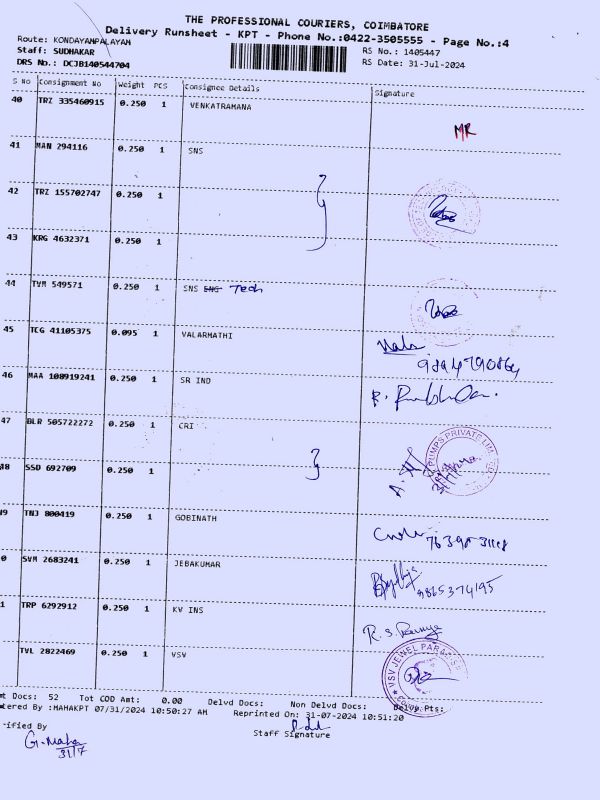 THE PROFESSIONAL COURIERS, COIMBATORE
Delivery Runsheet - KPT - Phone No.:0422-3505555 - Page No.:4
Route: KONDAYAMPALAYAM
RS No.: 1405447
Staff: SUDHAKAR
RS Date: 31-Jul-2024
DRS No.: DCJB140544704
S No Consignment No Weight PCS Consignee Details Signature
40 TRZ 335460915 0.250 1 VENKATRAMANA
MR
41 MAN 294116 0.250 1 SNS
42 TRZ 155702747 0.250 1
43 KRG 4632371 0.250 1
44 TVM 549571 0.250 1 SNS ENG Tech
45 TCG 41105375 0.095 1 VALARMATHI
46 MAA 108919241 0.250 1 SR IND
47 BLR 505722272 0.250 1 CRI
PUMPS PRIVATE LIM
48 SSD 692709 0.250 1
9 TNJ 800419 0.250 1 GOBINATH
0 SVM 2683241 0.250 1 JEBAKUMAR
9865374195
1 TRP 6292912 0.250 1 KV INS
R. S. Ramya
TVL 2822469 0.250 1 VSV
VSV JEWEL PARADISE
t Docs: 52 Tot COD Amt: 0.00 Delvd Docs: Non Delvd Docs: Delvp.Pts:
tered By :MAHAKPT 07/31/2024 10:50:27 AM Reprinted On: 31-07-2024 10:51:20
ified By
Staff Signature
G. Maha
31/7